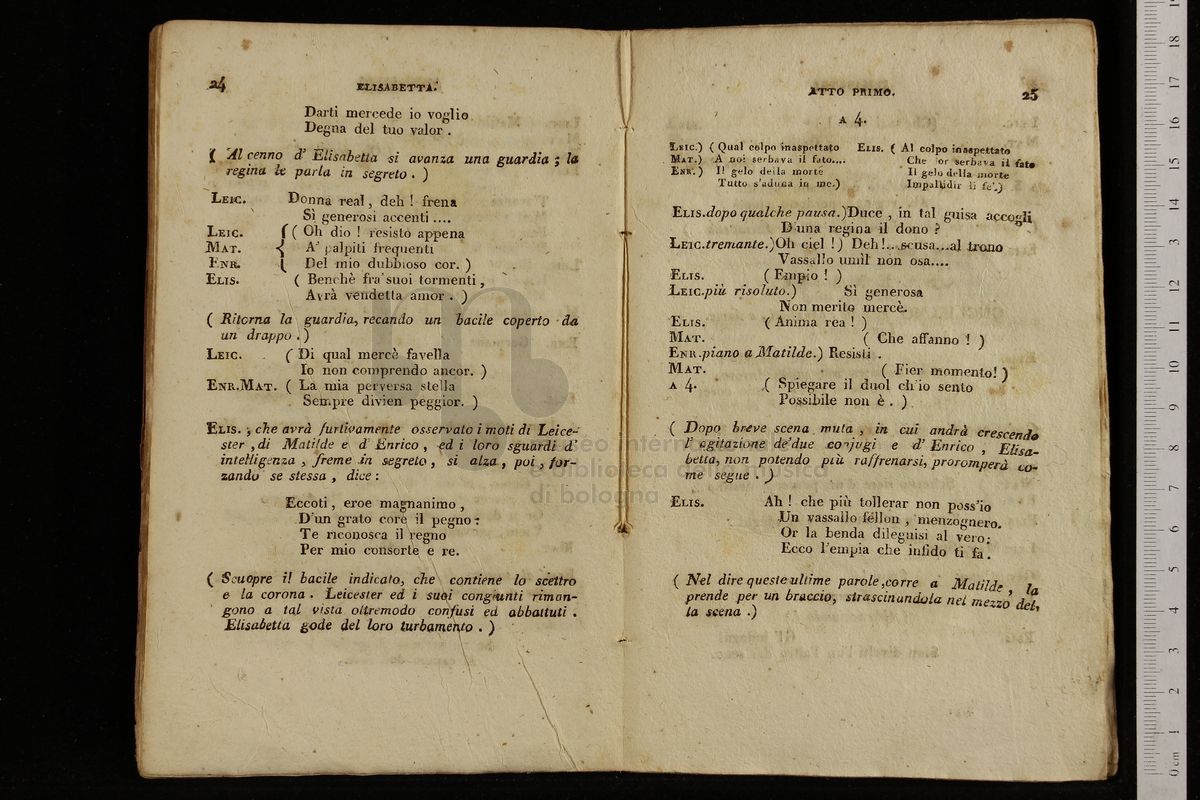 24
ELISABETTA.
Darti mercede io voglio
Degna del tuo valor .
( Al cenno d' Elisabetta si avanza una guardia ; la
regina le parla in segreto . )
LEIC. Donna real , deh ! frena
Sì generosi accenti ....
LEIC. { ( Oh dio ! resisto appena
MAT. { A' palpiti frequenti
ENR. { Del mio dubbioso cor. )
ELIS. ( Benchè fra'suoi tormenti ,
Avrà vendetta amor . )
( Ritorna la guardia, recando un bacile coperto da
un drappo . )
LEIC. ( Di qual mercè favella
Io non comprendo ancor. )
ENR.MAT. ( La mia perversa stella
Sempre divien peggior. )
ELIS. , che avrà furtivamente osservato i moti di Leice-
ster , di Matilde e d' Enrico , ed i loro sguardi d'
intelligenza , freme in segreto , si alza , poi , for-
zando se stessa , dice :
Eccoti , eroe magnanimo ,
D'un grato core il pegno :
Te riconosca il regno
Per mio consorte e re.
( Scuopre il bacile indicato, che contiene lo scettro
e la corona . Leicester ed i suoi congiunti riman-
gono a tal vista oltremodo confusi ed abbattuti .
Elisabetta gode del loro turbamento . )
ATTO PRIMO.
25
A 4.
LEIC.) ( Qual colpo inaspettato ELIS. ( Al colpo inaspettato
MAT.) A noi serbava il fato.... Che or serbava il fato
ENR.) Il gelo della morte Il gelo della morte
Tutto s'aduna in me.) Impallidir li fe'.)
ELIS.dopo qualche pausa.)Duce , in tal guisa accogli
D'una regina il dono ?
LEIC.tremante.)Oh ciel !) Deh!...scusa...al trono
Vassallo umil non osa....
ELIS. ( Empio ! )
LEIC.più risoluto.) Sì generosa
Non merito mercè.
ELIS. ( Anima rea ! )
MAT. ( Che affanno ! )
ENR.piano a Matilde.) Resisti .
MAT. ( Fier momento! )
A 4. ( Spiegare il duol ch'io sento
Possibile non è . )
( Dopo breve scena muta , in cui andrà crescendo
l' agitazione de'due conjugi e d' Enrico , Elisa-
betta, non potendo più raffrenarsi, proromperà co-
me segue . )
ELIS. Ah ! che più tollerar non poss'io
Un vassallo fellon , menzognero.
Or la benda dileguisi al vero:
Ecco l'empia che infido ti fa .
( Nel dire queste ultime parole ,corre a Matilde , la
prende per un braccio, strascinandola nel mezzo del-
la scena .)
museo internazionale
e biblioteca della musica
di bologna
0 cm 1 2 3 4 5 6 7 8 9 10 11 12 13 14 15 16 17 18 19